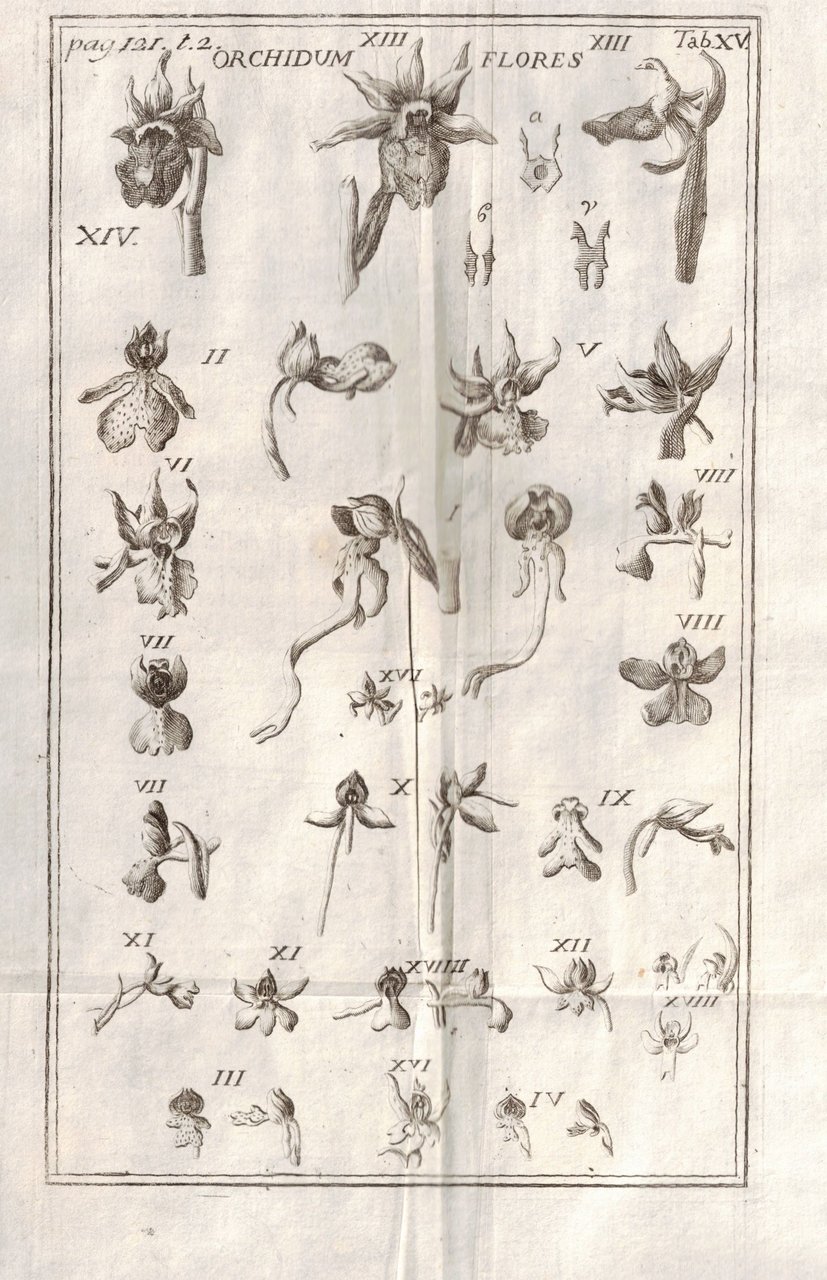 pag 121. t.2. ORCHIDUM XIII FLORES XIII Tab.XV.
a
XIV. ϐ γ
II V
VI VIII
I
VII VIII
XVII
VII X IX
XI XI XVIIII XII
XVIII
III XVI IV